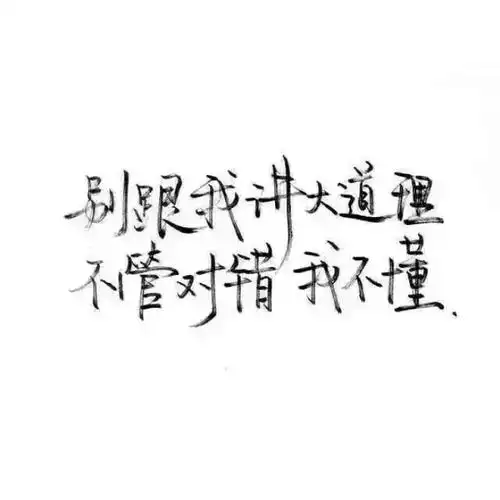 别跟我讲大道理
不管对错我不懂.